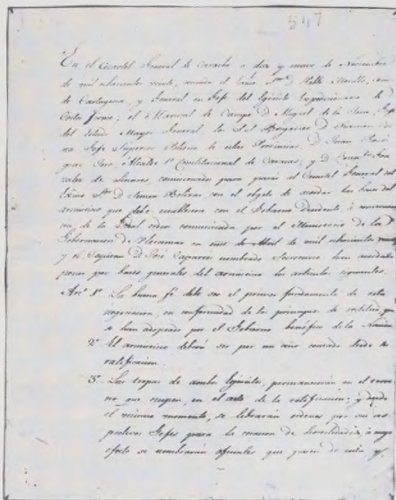 547
En el Cuartel General de Carache a diez y nueve de Noviembre
de mil ochocientos veinte, reunidos el Exmo Sor. D. Pablo Morillo, Conde
de Cartagena, y General en Jefe del Egército Expedicionario de
Costa firme; el Mariscal de Campo D. Miguel de la Torre, Jefe
del Estado Mayor General, los S.S. Brigadier D. Ramon Correa
Jefe Superior Politico de estas Provincias, D. Juan Rodriguez
Toro Alcalde 1º Constitucional de Caracas; y D. Gonzalez
de Linares, comisionados para pasar al Cuartel General del
Exmo Sr. D. Simon Bolivar con el objeto de acordar las bases del
armisticio que debe establecerse con el Gobierno Disidente, á consecuencia
de la Real orden comunicada por el Ministerio de la
Gobernacion de Ultramar en once de Abril de mil ochocientos veinte
y el Capitan D. José Caparros nombrado Secretario han acordado
poner por bases generales del armisticio los articulos siguientes.
Artº 1º La buena fé debe ser el primer fundamento de esta
negociacion, en conformidad de los principios de rectitud que
se han adoptado por el Gobierno benefico de la Nacion.
2º El armisticio deberá ser por un año contado desde su
ratificacion.
3º Las tropas de ambos Egércitos, permanecerán en el terreno
no que ocupen, en el acto de la ratificacion; y desde
el mismo momento, se librarán ordenes por sus respectivos
Gefes para la cesacion de hostilidades, á cuyo
efecto se nombrarán oficiales que pasen de una y